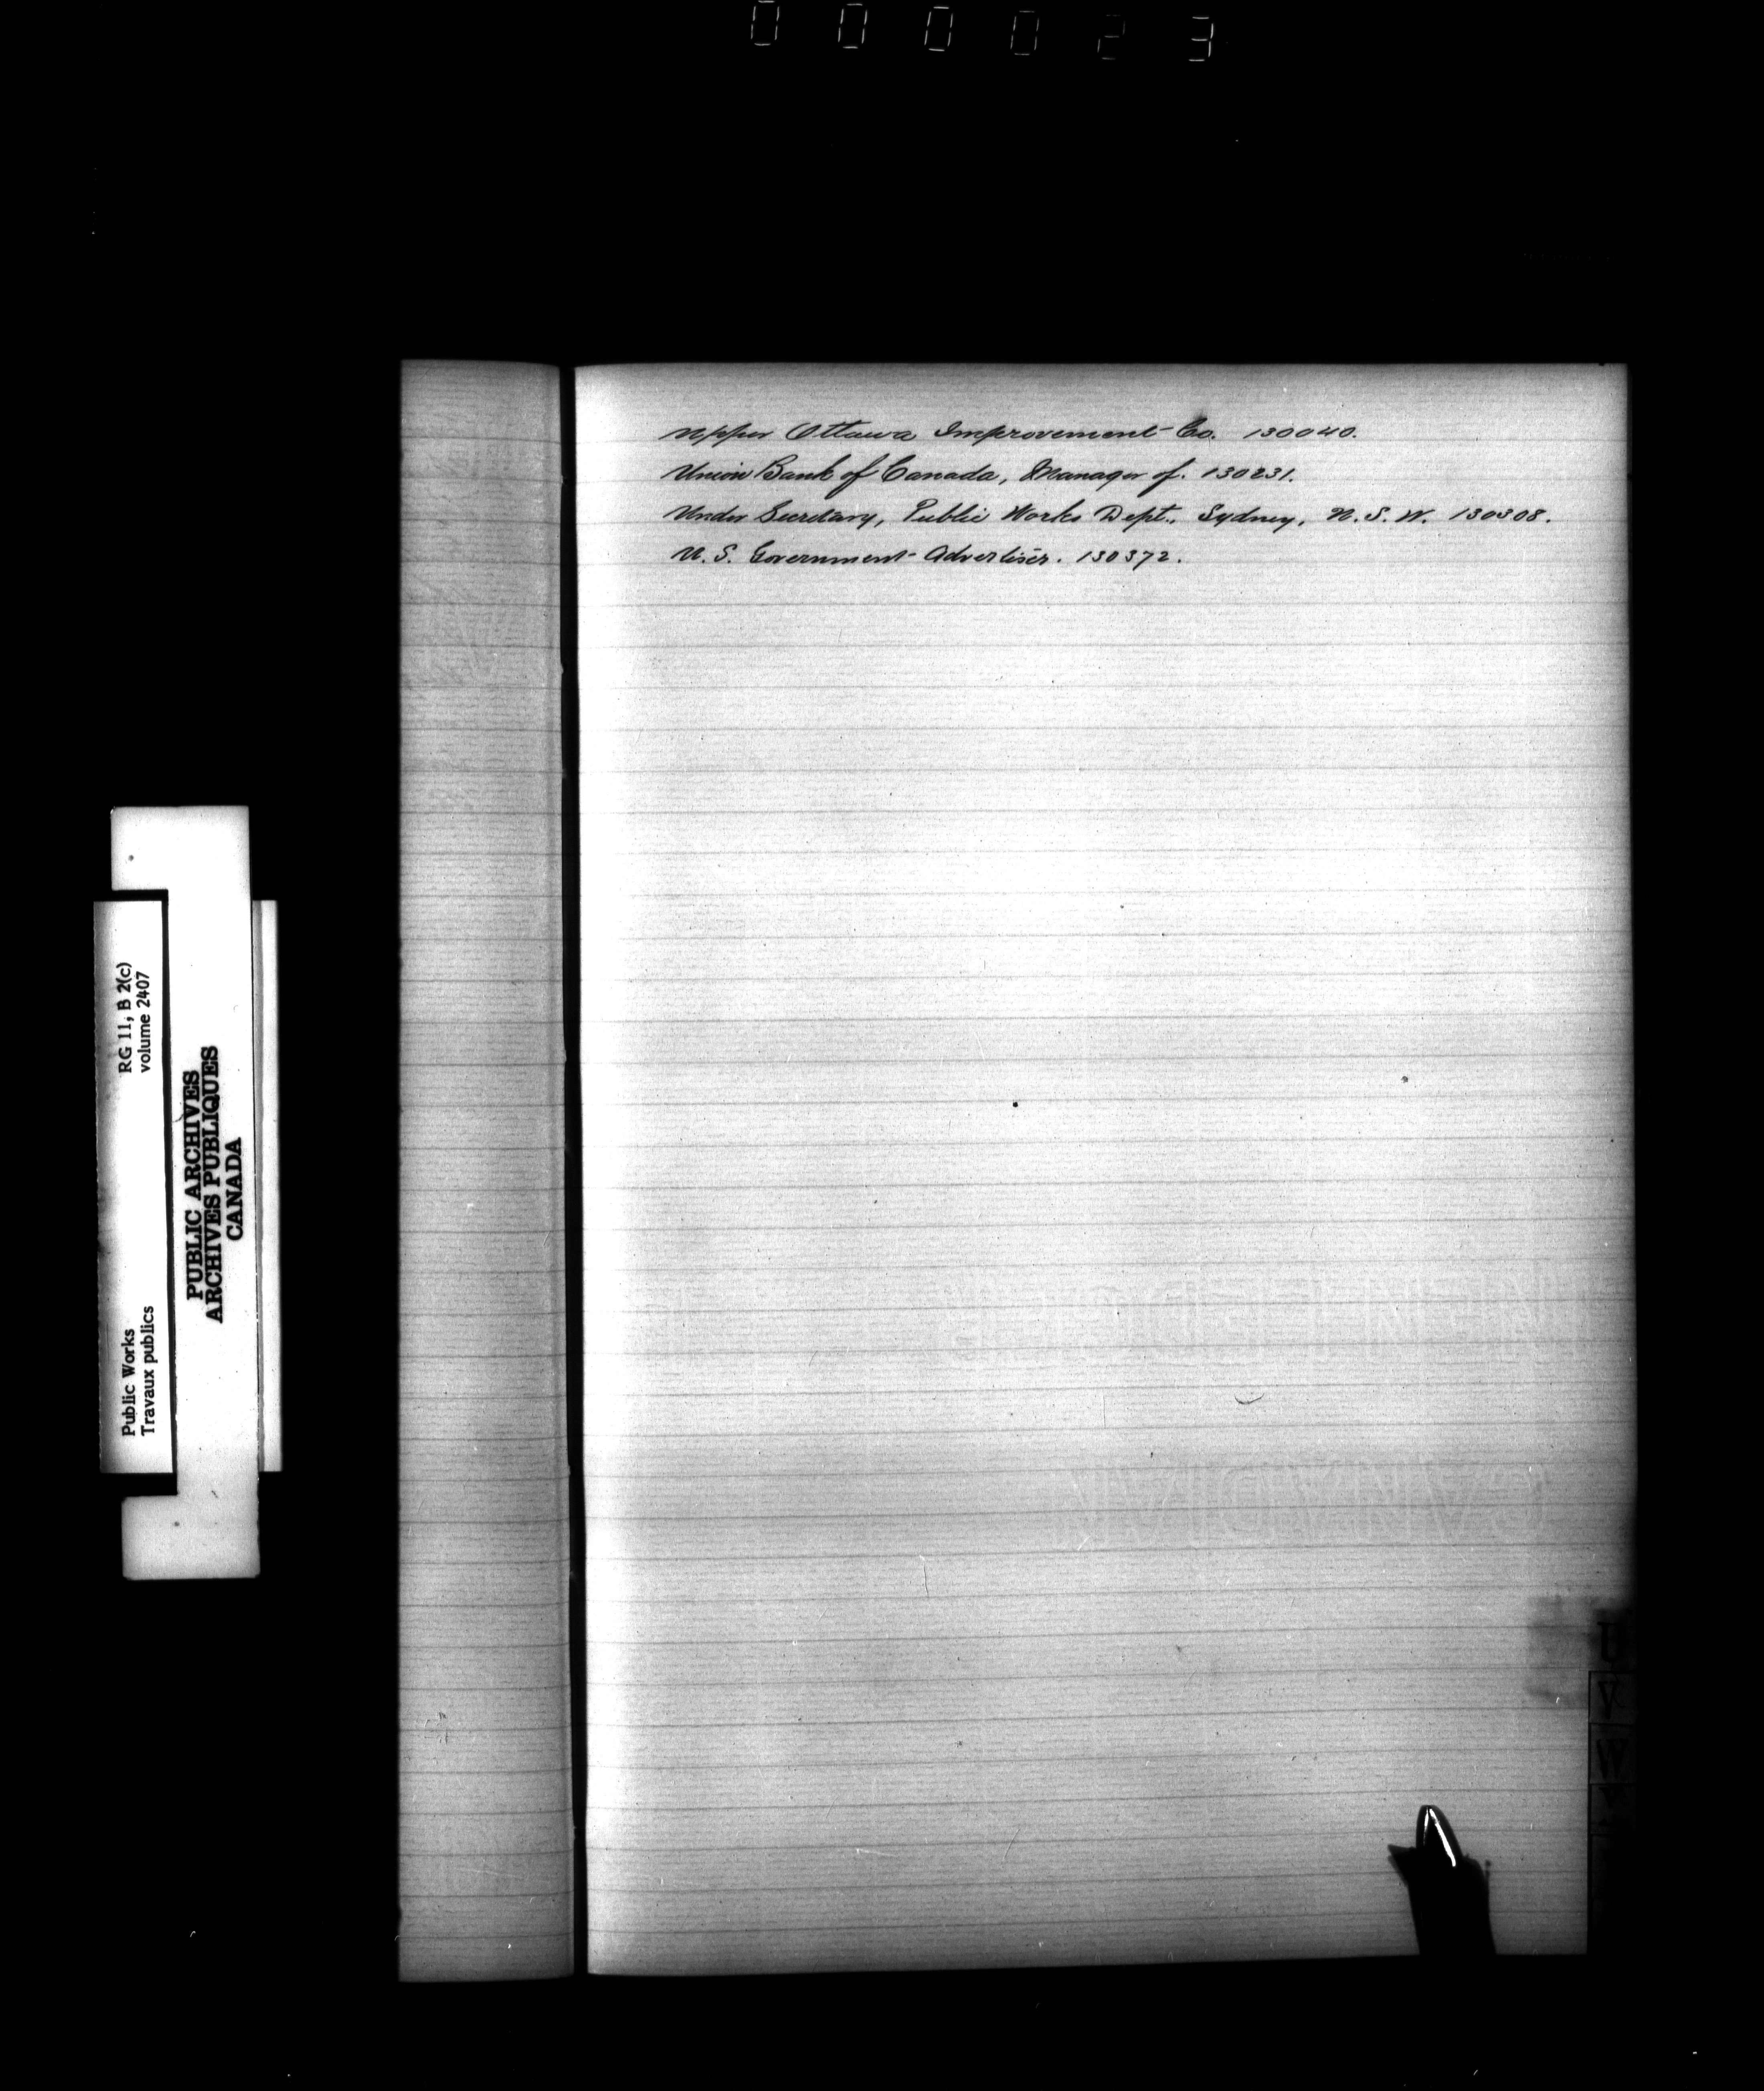 000023
Upper Ottawa Improvement Co. 130040.
Union Bank of Canada, Manager of. 130231.
Under Secretary, Public Works Dept., Sydney, N.S.W. 130308.
U.S. Government Advertiser. 130372.
RG 11, B 2(c)
volume 2407
PUBLIC ARCHIVES
ARCHIVES PUBLIQUES
CANADA
Public Works
Travaux publics
U
V
W